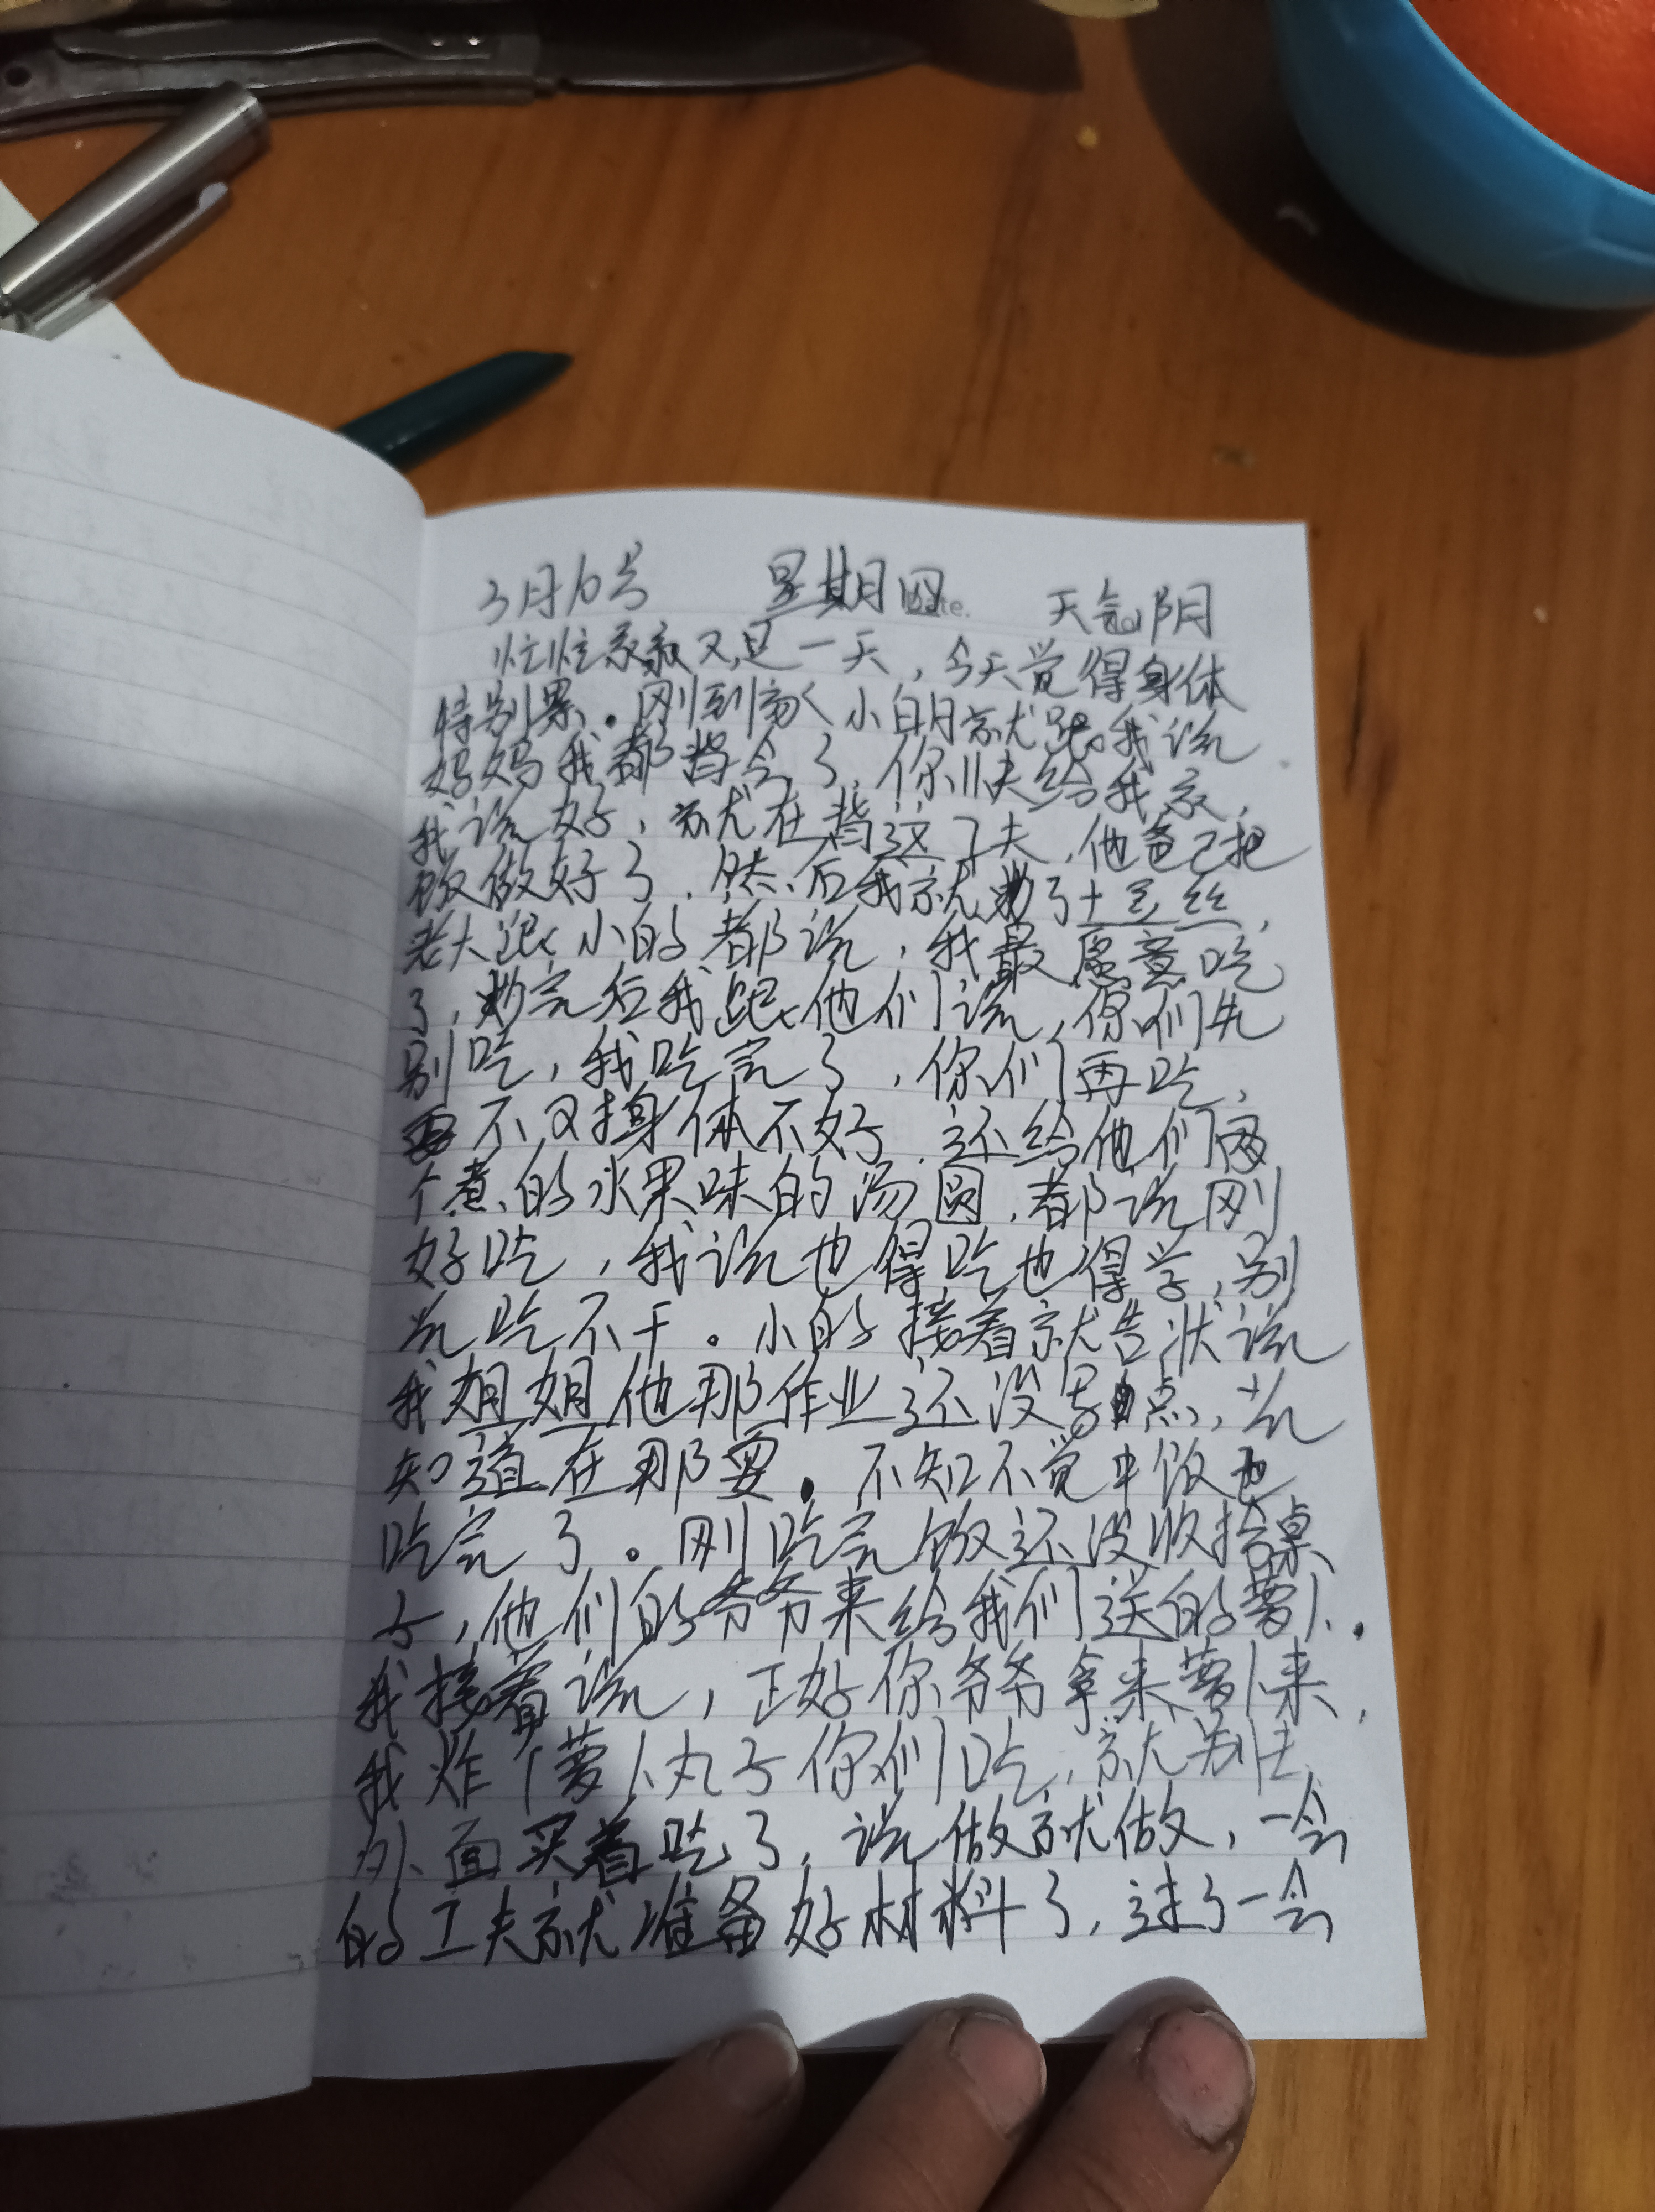 3月10号 星期四 天气阴
忙忙录录又是一天，今天觉得身体
特别累。刚到家小明就跟我说
妈妈我都背会了，你快给我录，
我说好，就在背这了夫，他爸已把
饭做好了，然后我就炒了土豆丝，
老大跟小的都说，我最愿意吃
了，炒完后我跟他们说，你们先
别吃，我吃完了，你们再吃，
要不又身体不好，还给他们俩
个煮的水果味的汤圆，都说刚
好吃，我说也得吃也得学，别
光吃不干。小的接着就告状说
我姐姐他那作业还没写点，光
知道在那耍。不知不觉中饭也
吃完了。刚吃完饭还没收拾桌
子，他们的爷爷来给我们送的萝卜。
我接着说，正好你爷爷拿来萝卜来，
我炸个萝卜丸子你们吃，就别上
外面买着吃了，说做就做，一会
的工夫就准备好材料了，过了一会
Date.